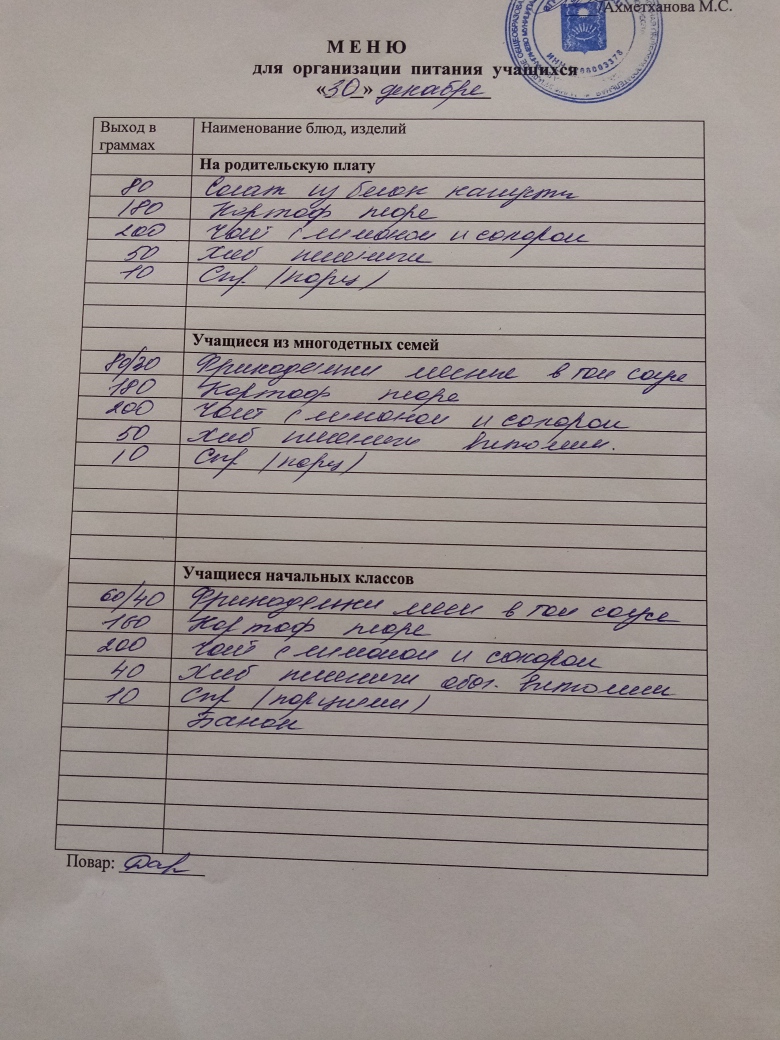 /Ахметханова М.С.
МЕНЮ
для организации питания учащихся
«30» декабря
Выход в граммах Наименование блюд, изделий
На родительскую плату
80 Салат из белок капусти
180 Картоф пюре
200 Чай с лимоном и сахаром
50 Хлеб пшенич
10 Сыр (порц)
Учащиеся из многодетных семей
80/20 Фрикадельки мясные в том соусе
180 Картоф пюре
200 Чай с лимоном и сахаром
50 Хлеб пшенич витамин.
10 Сыр (порц)
Учащиеся начальных классов
60/40 Фрикадельки мясн в том соусе
160 Картоф пюре
200 Чай с лимоном и сахаром
40 Хлеб пшенич обог. витамин
10 Сыр (порциями)
Банан
Повар: